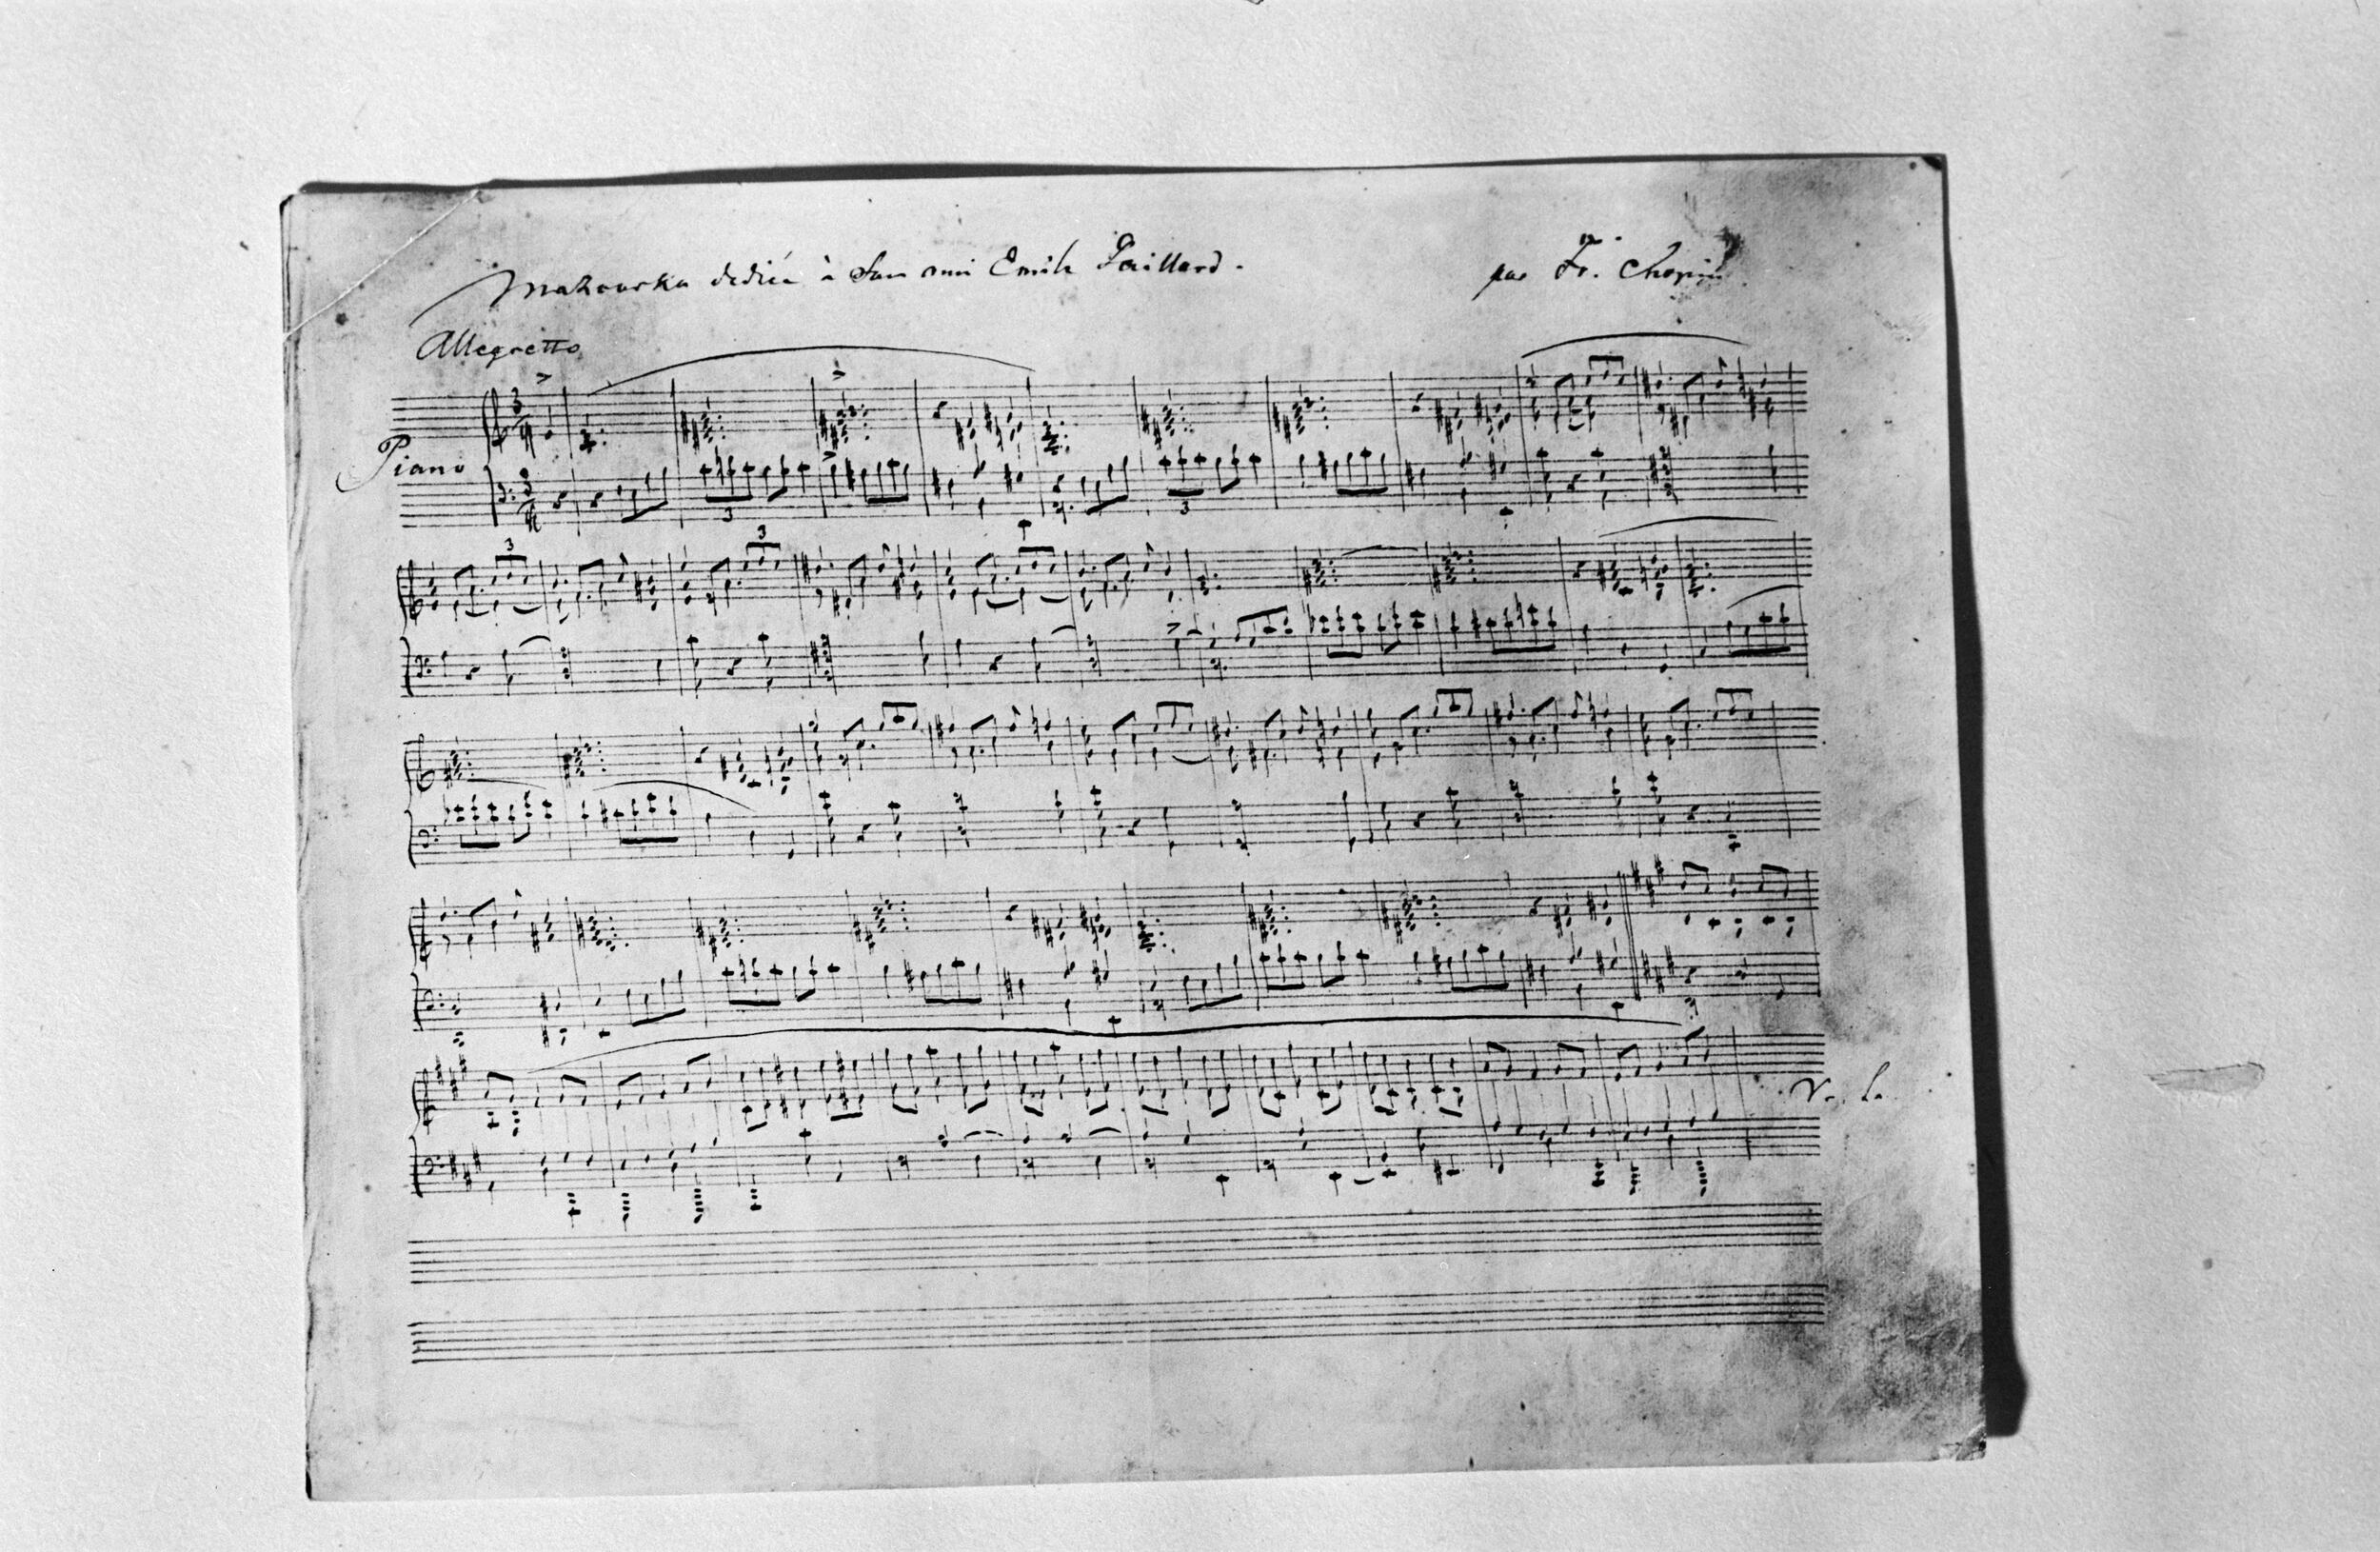 Mazourka dediée à Son ami Emile Gaillard. par Fr. Chopin
Allegretto
3
4
Piano
3
4
3
3
3
3
V. S.